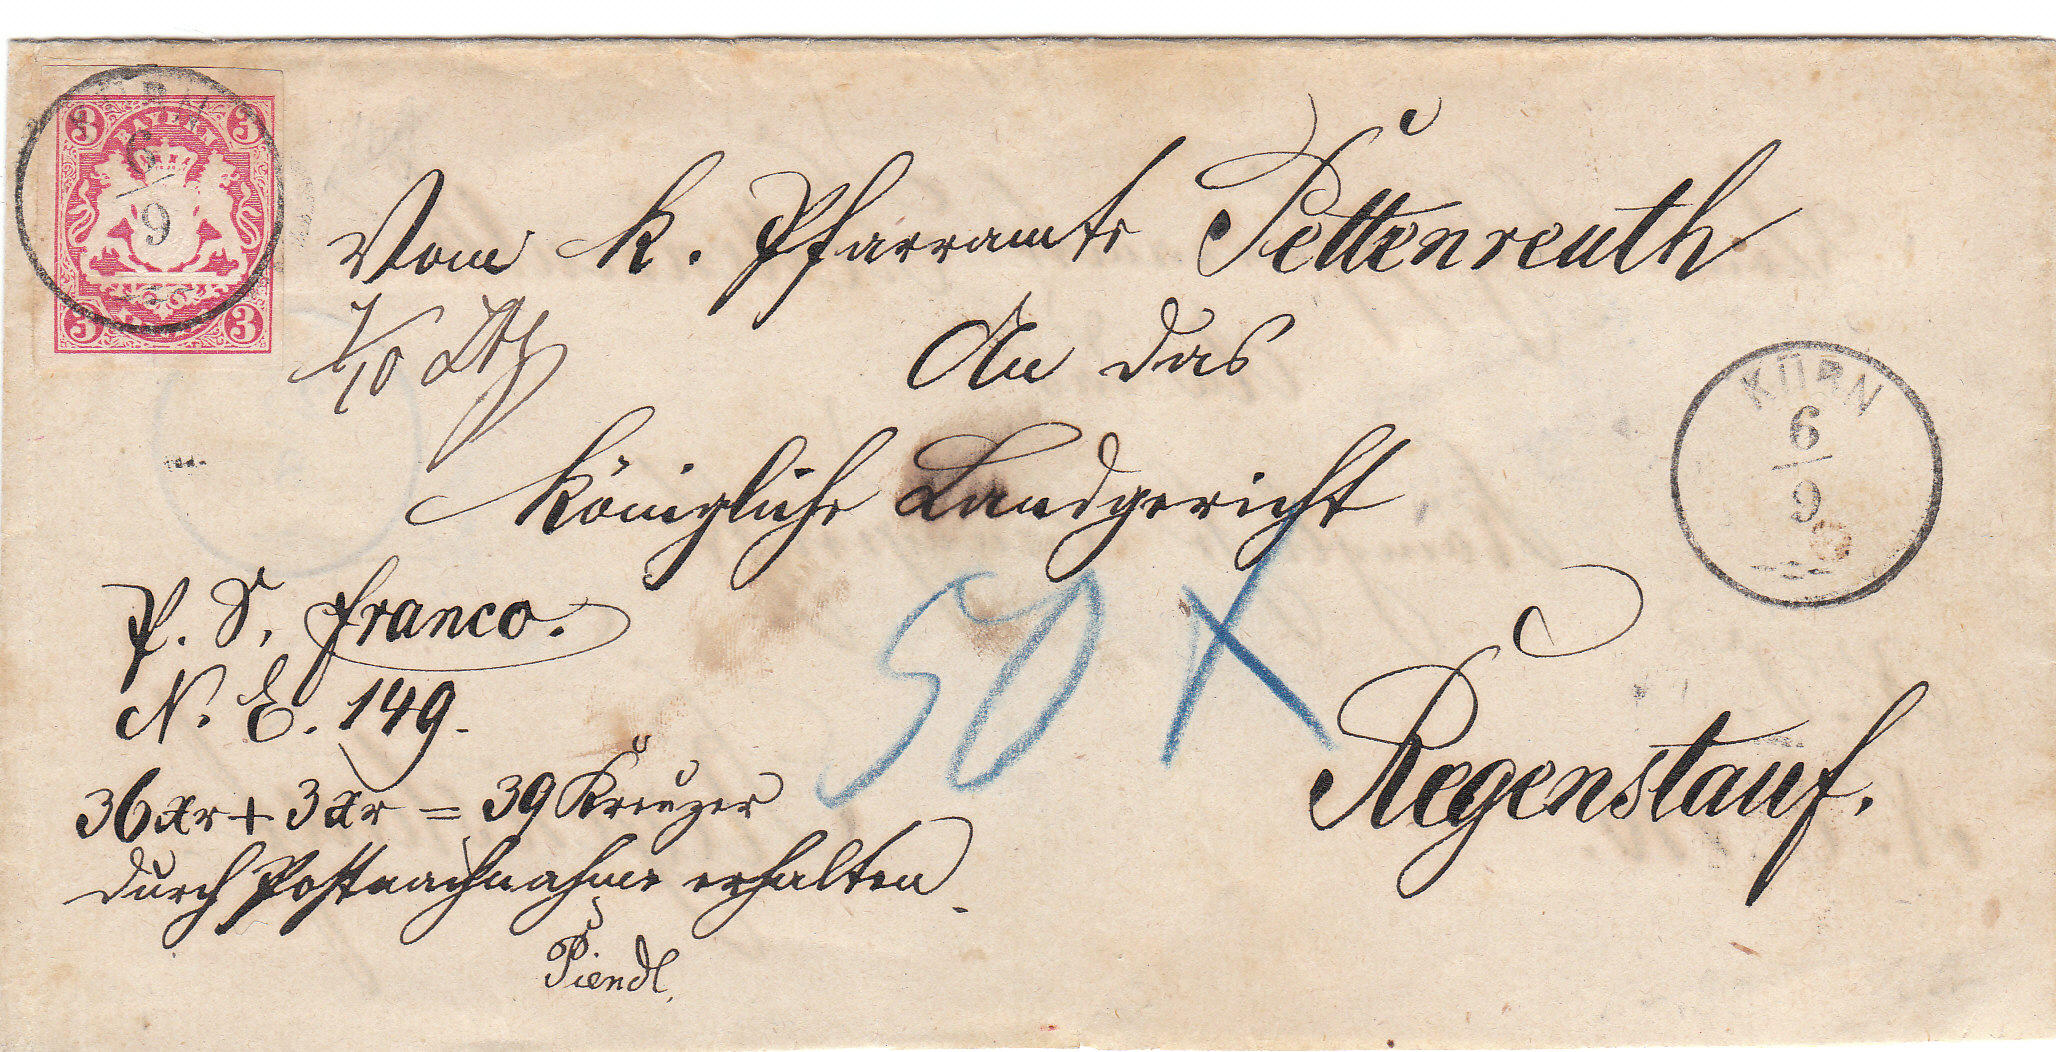 3 BAYERN 3
6
9
3 3
Vom k. Pfarramte Pettenreuth
7/10 Lth
An das
Königliche Landgericht
KÜRN
6
9
P. S. franco.
N. E. 149.
50 x
Regenstauf.
36 xr + 3 xr = 39 Kreuzer
durch Postnachnahme erhalten
Piendl.